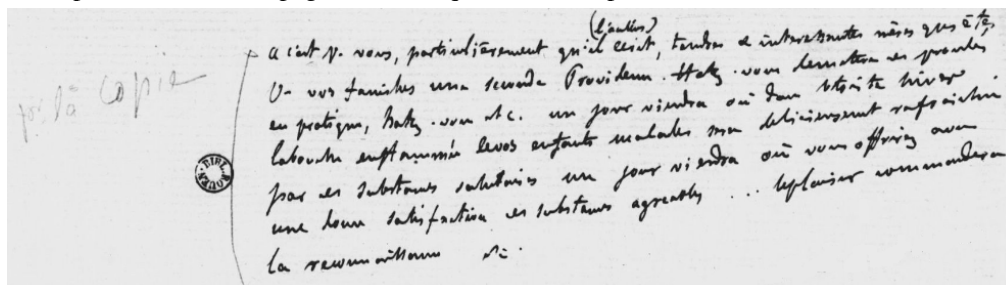 pr. là copie
(l'auteur)
a c'est pr. vous, particulièrement qu'il écrit, tendres & interessantes mères qui êtes
pr. vos familles une seconde Providence. Hatez-vous de mettre ces procédés
en pratique, hatez-vous etc. un jour viendra où dans hiver
la bouche enflammée de vos enfants malades sera delicieusement rafraichie
par ces substances salutaires un jour viendra où vous offrirez avec
une douce satisfaction ces substances agreables ... le plaisir commandera
la reconnaissance &c.
ROUEN